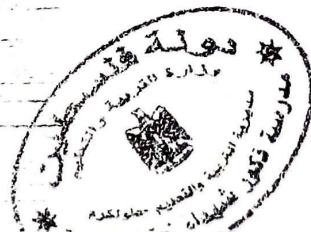 دولة فلسطين
وزارة التربية والتعليم
مديرية التربية والتعليم - طولكرم
مدرسة ذكور